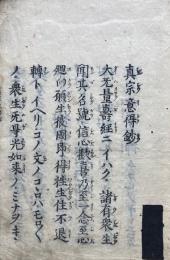 真宗意得鈔
大无量壽經ニイハク諸有衆生
聞其名號信心歡喜乃至一念至心
廻向願生彼國即得往生住不退
轉トイヘリコノ文ノコヽロハモロ〱
ノ衆生无㝵光如來ノミナヲキヽ